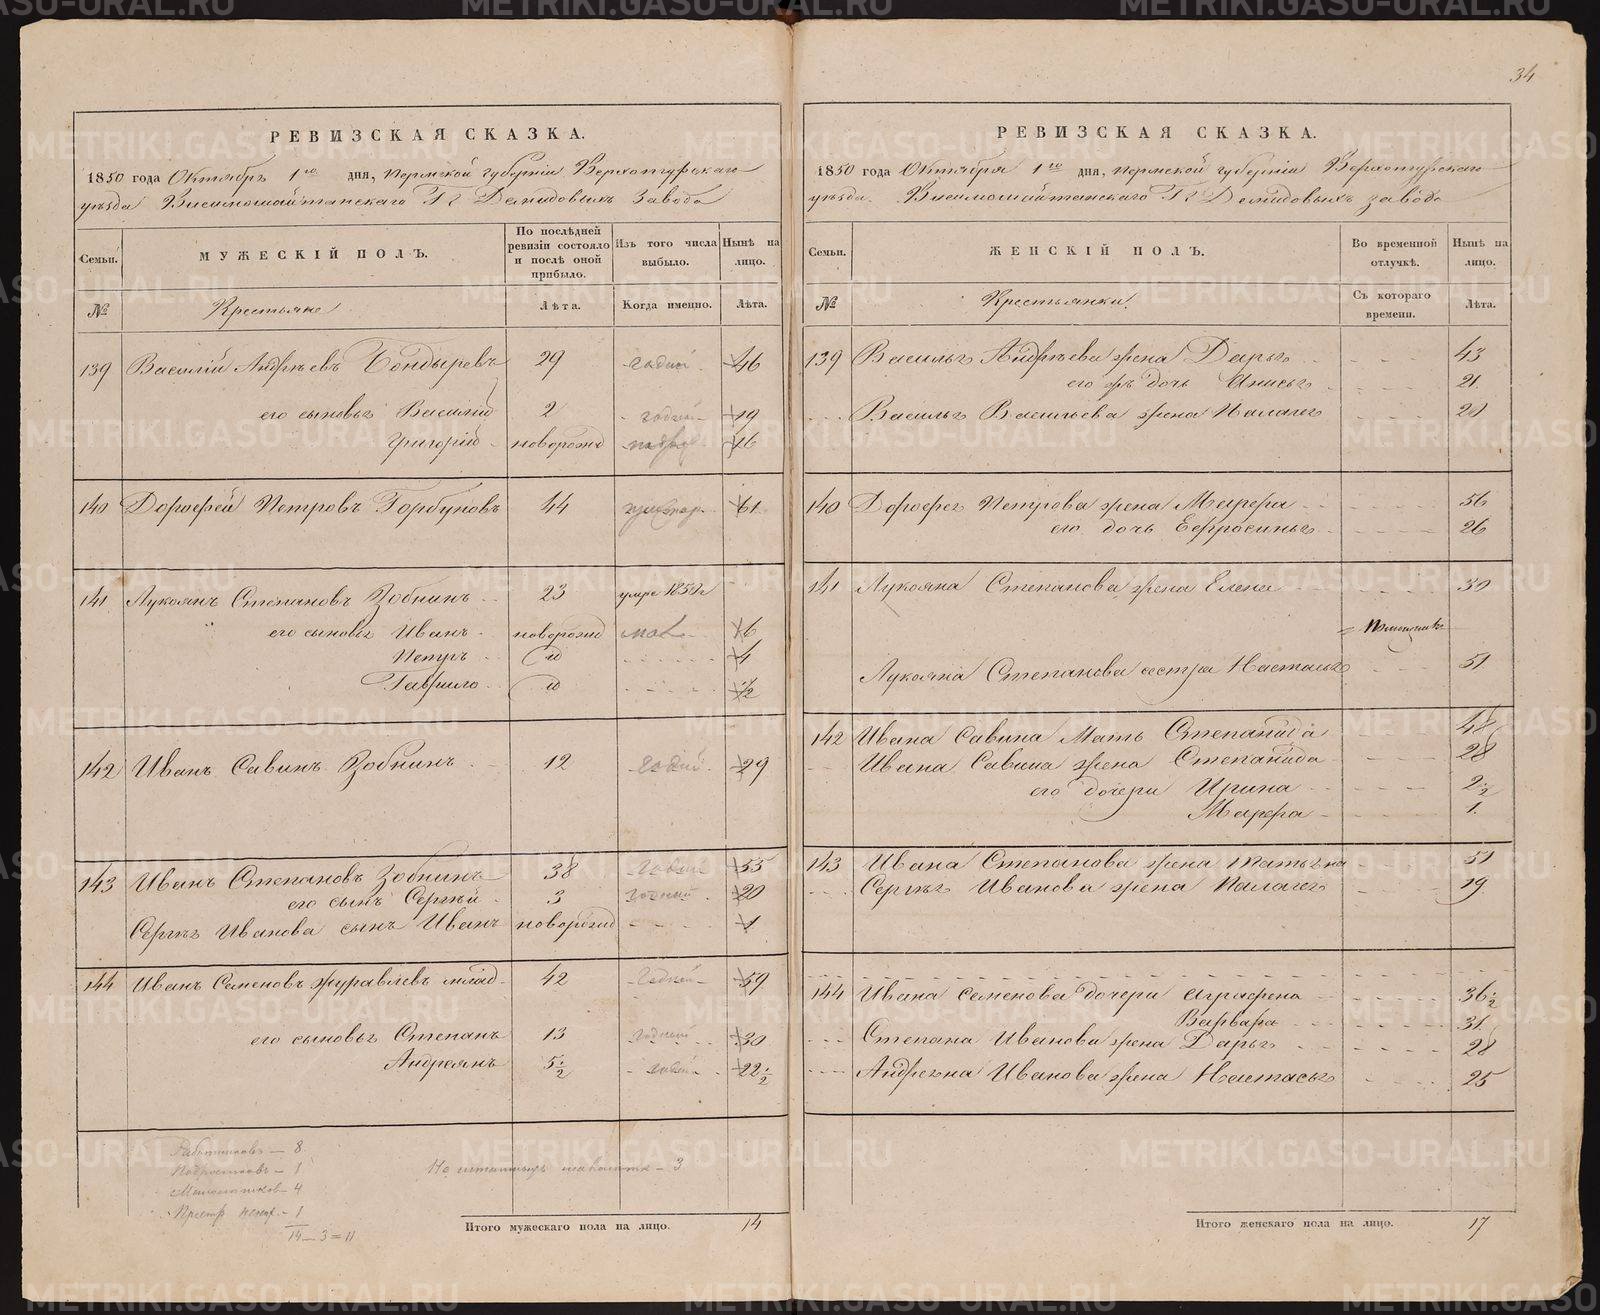 34
РЕВИЗСКАЯ СКАЗКА.
1850 года Октября 1го дня, Пермской губернiи Верхотурскаго
уѣзда Висимошайтанскаго Гг Демидовыхъ завода
Семьи. МУЖЕСКIЙ ПОЛЪ. По послѣдней ревизiи состояло и послѣ оной прибыло. Изъ того числа выбыло. Нынѣ на лицо.
№ Крестьяне Лѣта. Когда именно. Лѣта.
139 Василiй Андреевъ Бондыревъ 29 годной 46
его сыновья Василiй 2 годной 19
Григорiй новорожд 16
140 Дорофей Петровъ Горбуновъ 44 61
141 Лукоянъ Степановъ Зобнинъ 23 умре
его сыновья Иванъ новорожд мал 6
Петръ id 4
Гаврило id 1/2
142 Иванъ Савинъ Зобнинъ 12 годной 29
143 Иванъ Степановъ Зобнинъ 38 годной 55
его сынъ Сергѣй 3 годной 20
Сергѣя Иванова сынъ Иванъ новорожд 1
144 Иванъ Семеновъ Журавлевъ млад 42 годной 59
его сыновья Степанъ 13 годной 30
Андреянъ 5 1/2 годной 22 1/2
Работниковъ — 8
Подростковъ — 1
Малолѣтковъ — 4
Престр — 1
14 — 3 = 11
Не — 3
Итого мужескаго пола на лицо. 14
РЕВИЗСКАЯ СКАЗКА.
1850 года Октября 1го дня, Пермской губернiи Верхотурскаго
уѣзда Висимошайтанскаго Гг Демидовыхъ завода
Семьи. ЖЕНСКIЙ ПОЛЪ. Во временной отлучкѣ. Нынѣ на лицо.
№ Крестьянки Съ котораго времени. Лѣта.
139 Василья Андреева жена Дарья 43
его дочь Анисья 21
Василья Васильева жена Палагея 20
140 Дорофея Петрова жена Марфа 56
его дочь Ефросинья 26
141 Лукояна Степанова жена Елена 30
Лукояна Степанова сестра Настасья 51
142 Ивана Савина Мать Степанида 48
Ивана Савина жена Степанида 28
его дочери Ирина 2 1/2
Марфа 1
143 Ивана Степанова жена Татьяна 51
Сергѣя Иванова жена Палагея 19
144 Ивана Семенова дочери Аграфена 36 1/2
Варвара 31
Степана Иванова жена Дарья 28
Андреяна Иванова жена Настасья 25
Итого женскаго пола на лицо. 17
METRIKI.GASO-URAL.RU